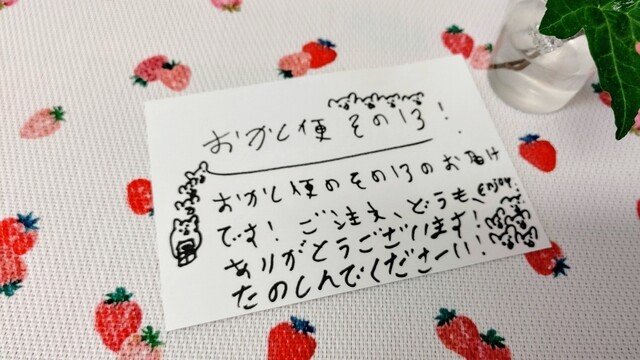 おかし便 その13!
おかし便のその13のお届け
です! ご注文、どうも、
ありがとうございます!
たのしんでくださーい!
enjoy.